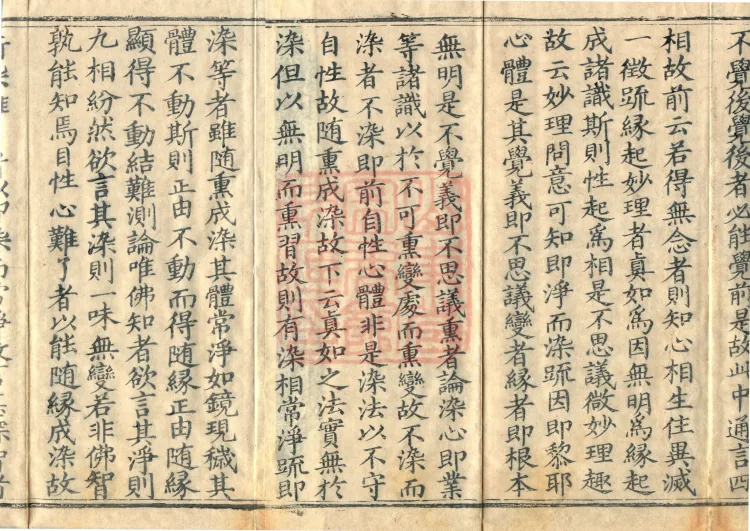 不覺後覺後者必能覺前是故此中通言四
相故前云若得無念者則知心相生住異滅
一徵䟽緣起妙理者眞如爲因無明爲緣起
成諸識斯則性起爲相是不思議微妙理趣
故云妙理問意可知即淨而染䟽因即黎耶
心體是其覺義即不思議變者緣者即根本
無明是不覺義即不思議熏者論染心即業
等諸識以於不可熏變處而熏變故不染而
染者不染即前自性心體非是染法以不守
自性故随熏成染故下云眞如之法實無於
染但以無明而熏習故則有染相常淨䟽即
染等者雖随熏成染其體常淨如鏡現穢其
體不動斯則正由不動而得随緣正由随緣
顯得不動結難測論唯佛知者欲言其淨則
九相紛然欲言其染則一味無變若非佛智
孰能知焉自性心難了者以能随緣成染故